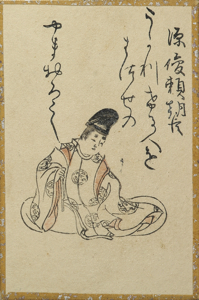 源俊頼朝臣
うかりける人を
はつせの
やまおろし